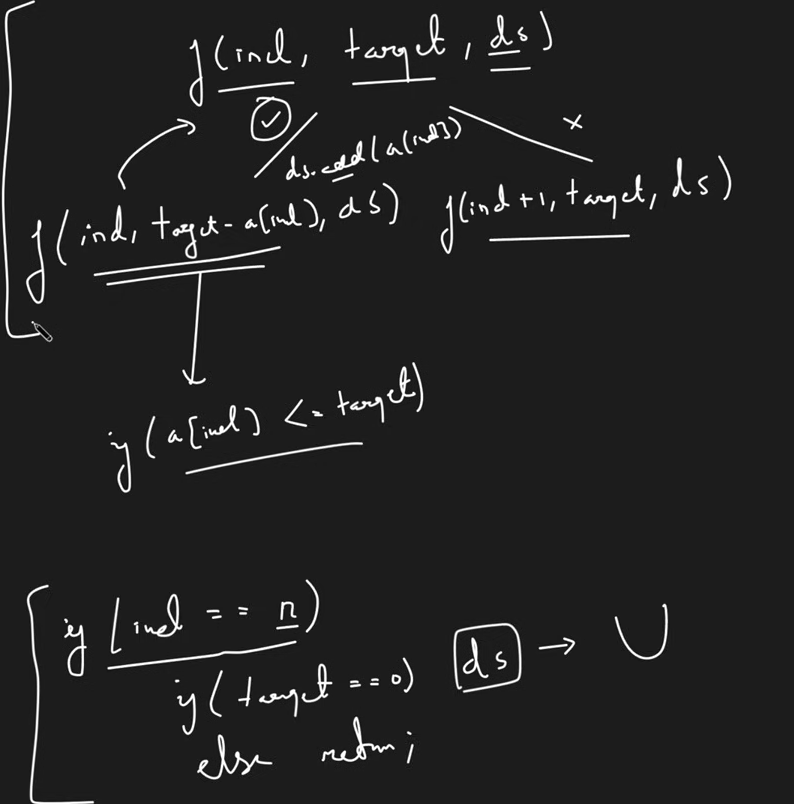 f(ind, target, ds)
✓ ds.add(a[ind]) x
f(ind, target - a[ind], ds) f(ind+1, target, ds)
if (a[ind] <= target)
if (ind == n)
if (target == 0) ds →
else return;